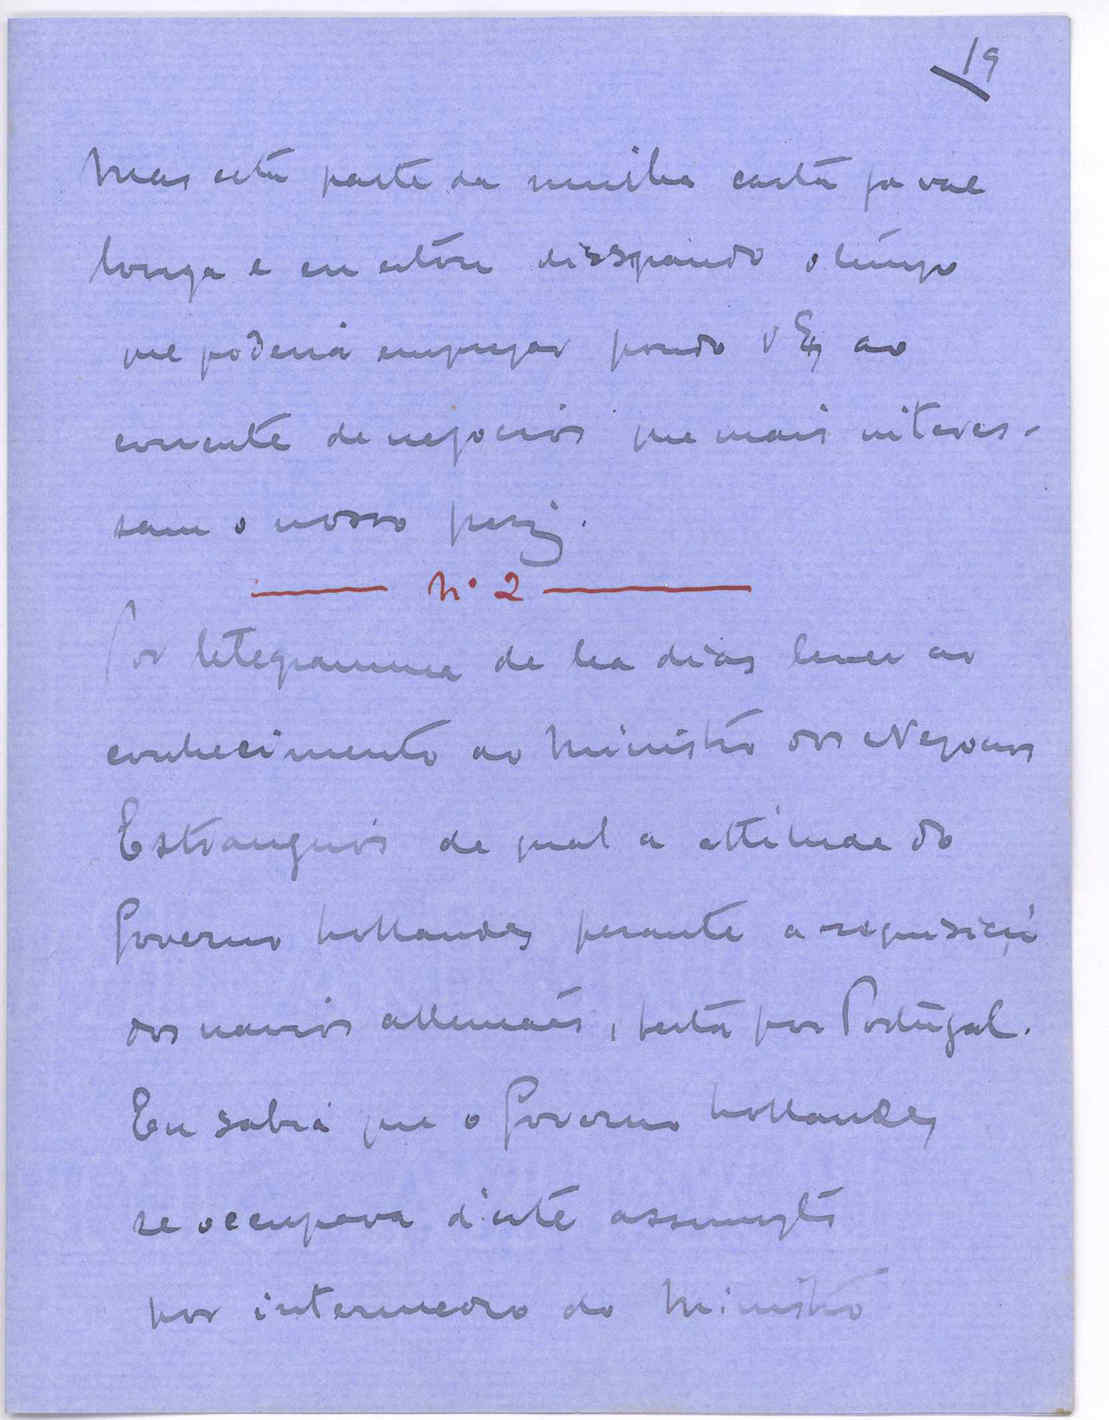 19
Mas esta parte da minha carta ja vae
longa e eu estou dissipando o tempo
que poderia empregar pondo V Ex ao
corrente de negocios que mais interes-
sam o nosso paiz.
Nº 2
Por telegramma de ha dias levei ao
conhecimento do Ministro dos Negocios
Estrangeiros de qual a attitude do
Governo hollandez perante a requisição
dos navios allemães, feita por Portugal.
Eu sabia que o Governo hollandez
se occupava d'este assumpto
por intermedio do Ministro